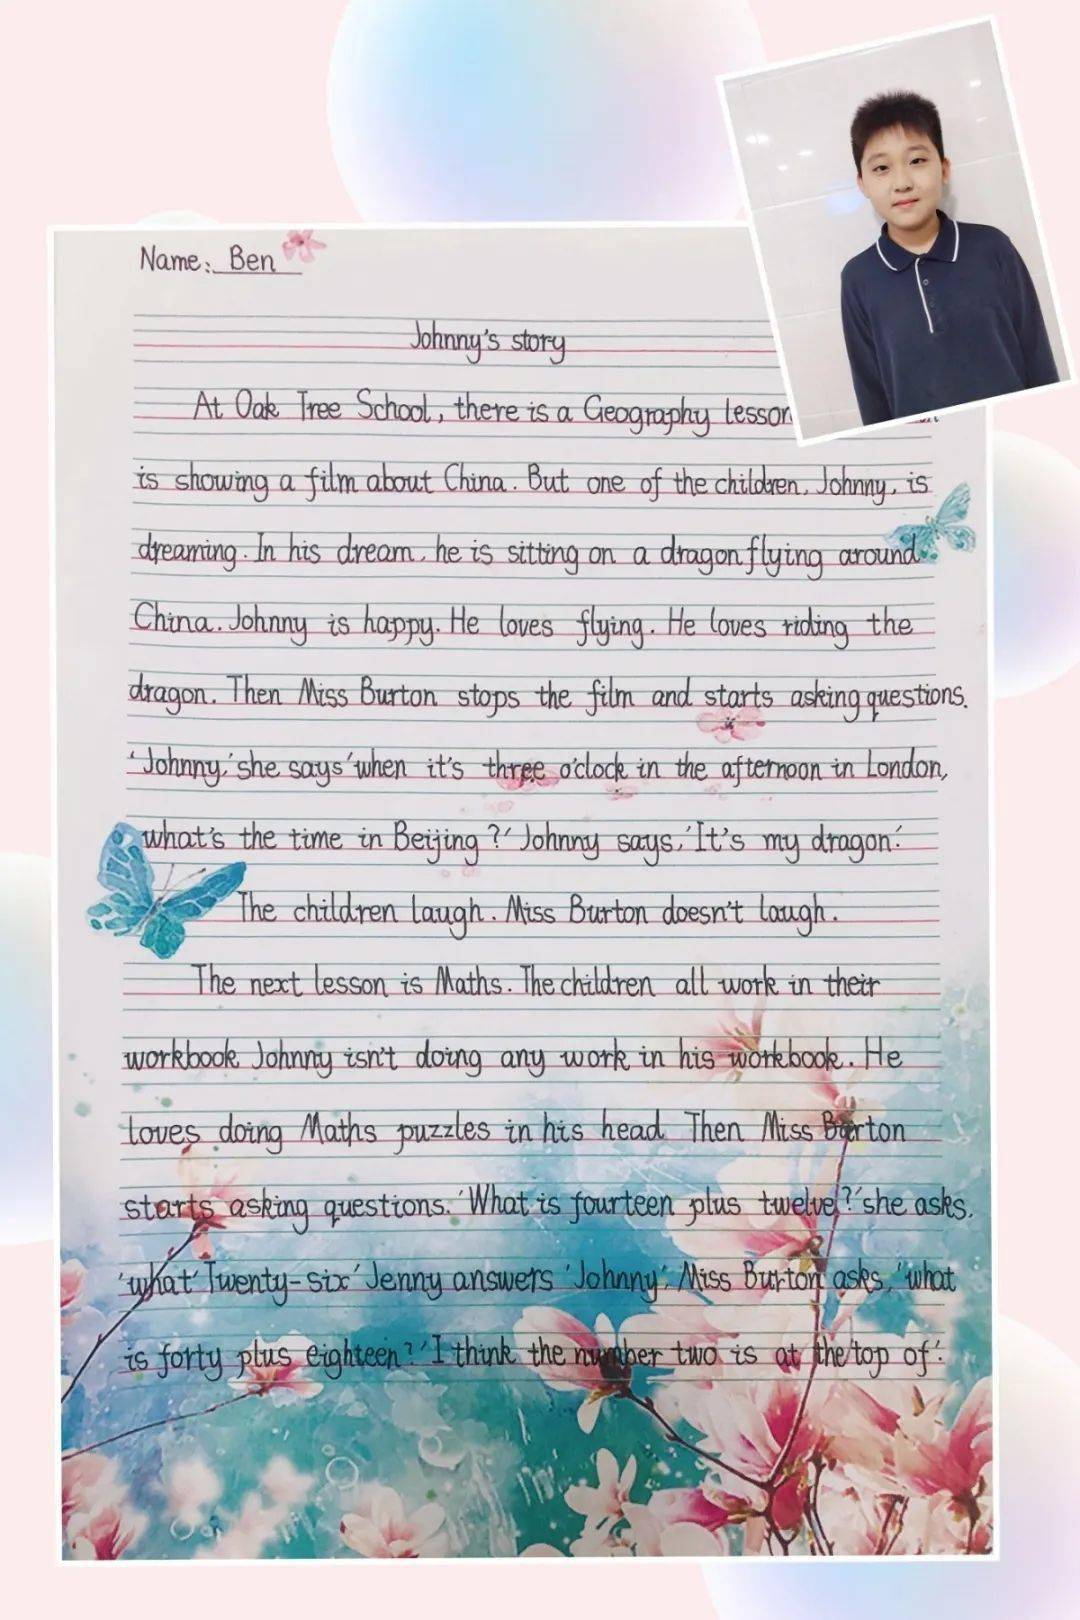 Name: Ben
Johnny's story
At Oak Tree School, there is a Geography lesson
is showing a film about China. But one of the children, Johnny, is
dreaming. In his dream, he is sitting on a dragon flying around
China. Johnny is happy. He loves flying. He loves riding the
dragon. Then Miss Burton stops the film and starts asking questions.
'Johnny,' she says 'when it's three o'clock in the afternoon in London,
what's the time in Beijing?' Johnny says, 'It's my dragon.'
The children laugh. Miss Burton doesn't laugh.
The next lesson is Maths. The children all work in their
workbook. Johnny isn't doing any work in his workbook. He
loves doing Maths puzzles in his head. Then Miss Burton
starts asking questions. 'What is fourteen plus twelve?' she asks.
'what' Twenty-six' Jenny answers 'Johnny', Miss Burton asks, 'what
is forty plus eighteen?' 'I think the number two is at the top of'.